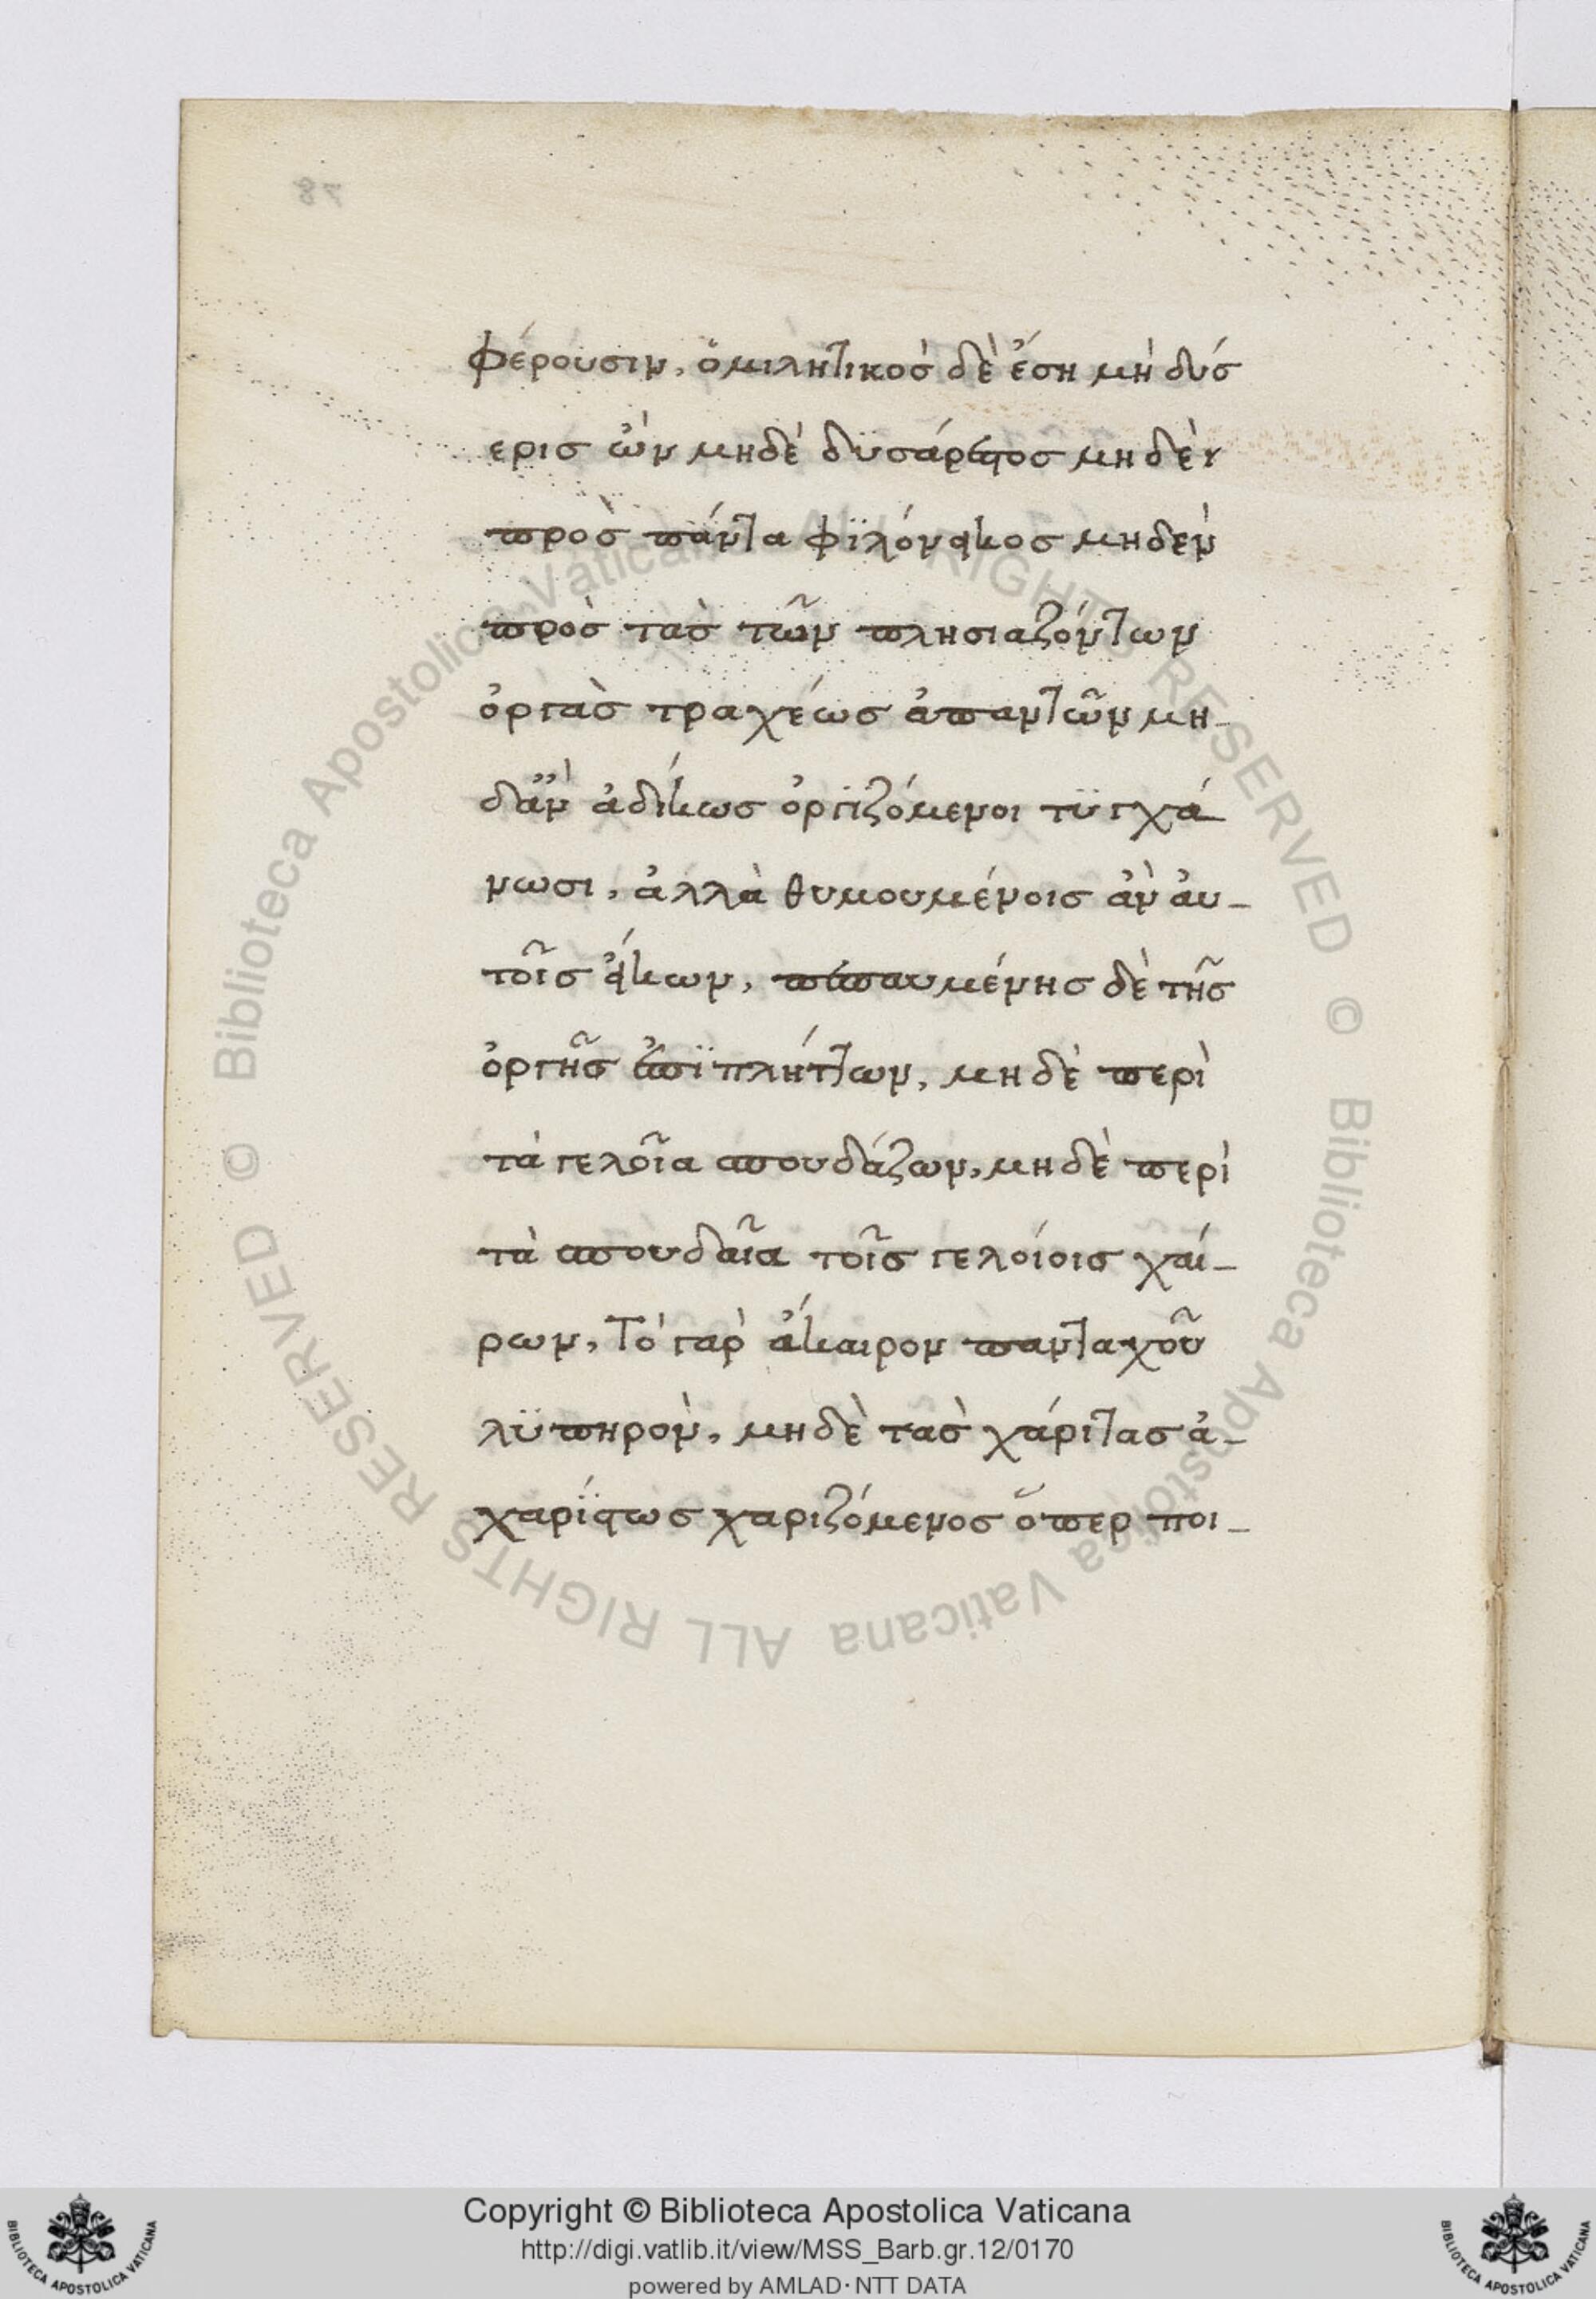 87
φέρουσιν, ὁμιλητικὸς δὲ ἔση μὴ δύσ
ερις ὢν μηδὲ δϋσάρεστος μηδὲ
πρὸς πάντα φϊλόνεικος μηδὲν
πρὸς τὰς τῶν πλησιαζόντων
ὀργὰς τραχέως ἀπαντῶν μη-
δ' ἂν ἀδίκως ὀργϊζόμενοι τϋγχά
νωσι, ἀλλὰ θυμουμένοις ἂν ἀυ-
τοῖς εἴκων, πεπαυμένης δὲ τῆς
ὀργῆς ἐπϊπλήττων, μηδὲ περὶ
τὰ γελοῖα σπουδάζων, μηδὲ περὶ
τὰ σπουδαῖα τοῖς γελοίοις χαί-
ρων, Τὸ γὰρ ἄκαιρον πανταχοῦ
λϋπηρὸν, μηδὲ τὰς χάριτας ἀ-
χαρίστως χαριζόμενος ὅπερ ποι-
© Biblioteca Apostolica Vaticana ALL RIGHTS RESERVED © Biblioteca Apostolica Vaticana ALL RIGHTS RESERVED
Copyright © Biblioteca Apostolica Vaticana
http://digi.vatlib.it/view/MSS_Barb.gr.12/0170
powered by AMLAD·NTT DATA
BIBLIOTECA APOSTOLICA VATICANA
BIBLIOTECA APOSTOLICA VATICANA